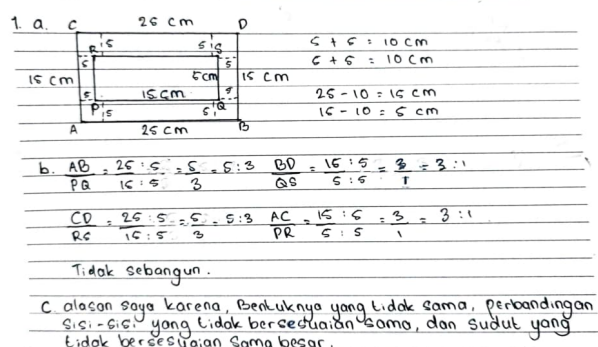 1. a. C 25 cm D
R 5 5 S 5 + 5 = 10 cm
5 5 5 + 5 = 10 cm
15 cm 5cm 15 cm
5 15 cm 5 25 - 10 = 15 cm
P 5 5 Q 15 - 10 = 5 cm
A 25 cm B
b. AB/PQ = 25 : 5/15 : 5 = 5/3 = 5:3 BD/QS = 15 : 5/5 : 5 = 3/1 = 3 : 1
CD/RS = 25 : 5/15 : 5 = 5/3 = 5:3 AC/PR = 15 : 5/5 : 5 = 3/1 = 3 : 1
Tidak sebangun.
C. alasan saya karena, Bentuknya yang tidak sama, perbandingan
sisi-sisi yang tidak bersesuaian sama, dan sudut yang
tidak bersesuaian sama besar.